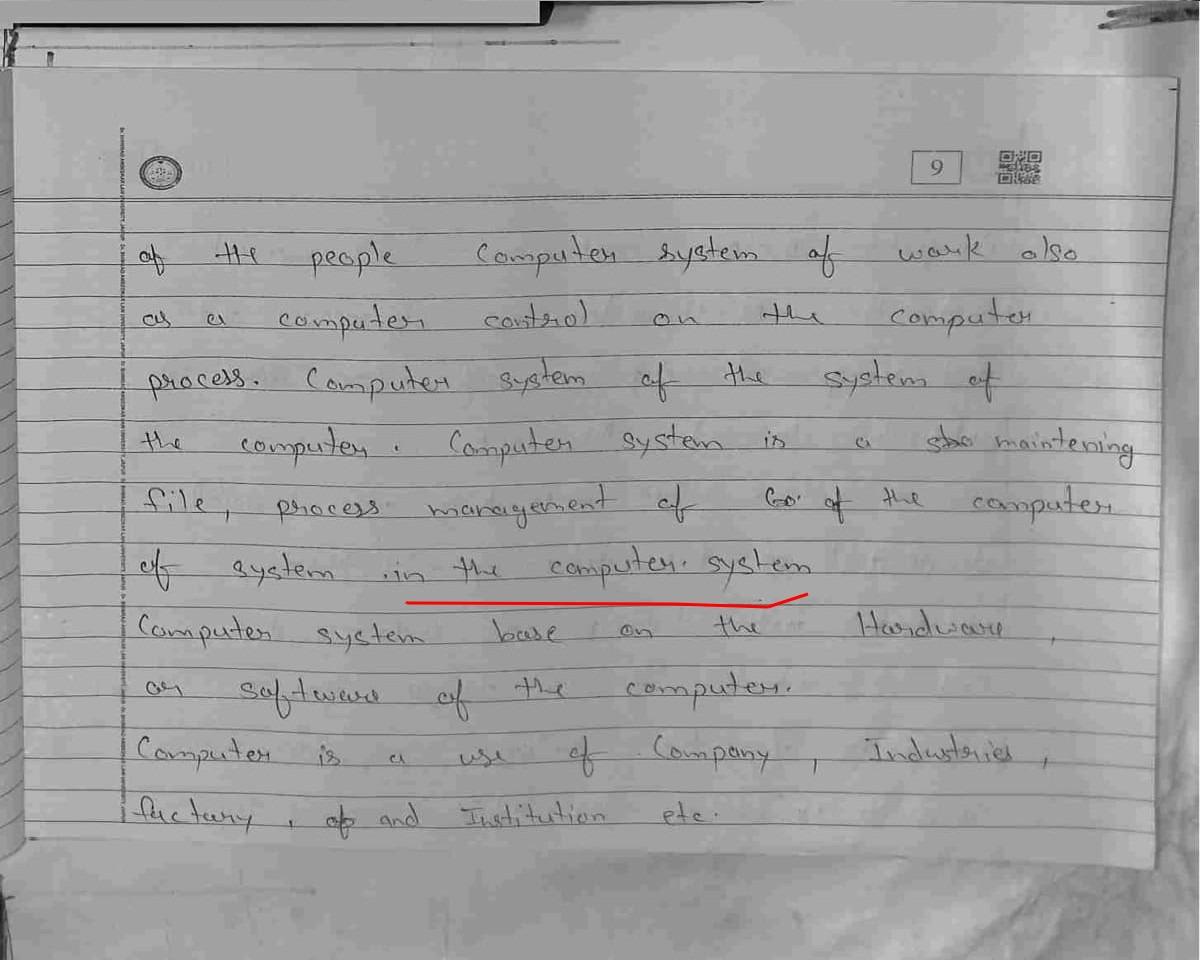 9
of the people Computer system of work also
as a computer control on the computer
process. Computer system of the system of
the computer. Computer system is a maintening
file, process management of of the computer
of system in the computer. system
Computer system base on the Hardware,
or software of the computer.
Computer is a use of Company, Industries,
factory, and Institution etc.